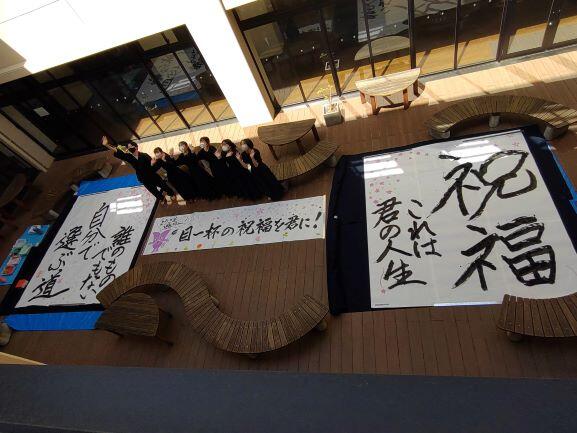 祝福
これは
君の人生
目一杯の祝福を君に!
誰のもの
でもない
自分で
選ぶ道